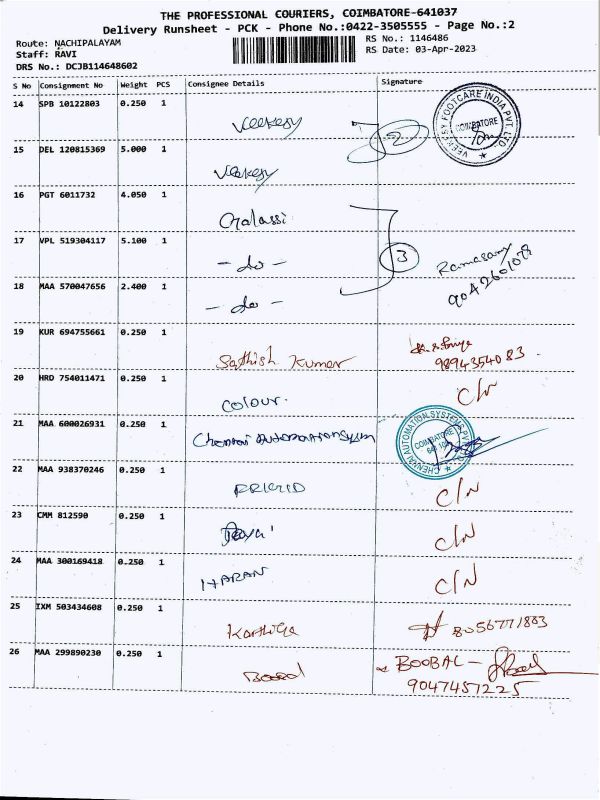 THE PROFESSIONAL COURIERS, COIMBATORE-641037
Delivery Runsheet - PCK - Phone No.:0422-3505555 - Page No.:2
Route: NACHIPALAYAM
RS No.: 1146486
Staff: RAVI
RS Date: 03-Apr-2023
DRS No.: DCJB114648602
S No Consignment No Weight PCS Consignee Details Signature
14 SPB 10122803 0.250 1
Veekesy 2
VEEKESY FOOTCARE INDIA PVT. LTD. COIMBATORE
15 DEL 120815369 5.000 1
Veekesy
16 PGT 6011732 4.050 1
Galassi
17 VPL 519304117 5.100 1
- do - 3 Ramasamy
18 MAA 570047656 2.400 1
- do -
19 KUR 694755661 0.250 1
Sathish Kumar 9894354083
20 HRD 754011471 0.250 1
Colour. C/N
21 MAA 600026931 0.250 1
Chennai Automation System
CHENNAI AUTOMATION SYSTEMS PVT. COIMBATORE
22 MAA 938370246 0.250 1
C/N
23 CMM 812590 0.250 1
C/N
24 MAA 300169418 0.250 1
HARAN C/N
25 IXM 503434608 0.250 1
Karthiga 8056771883
26 MAA 299890230 0.250 1
BOOBAL
9047457225